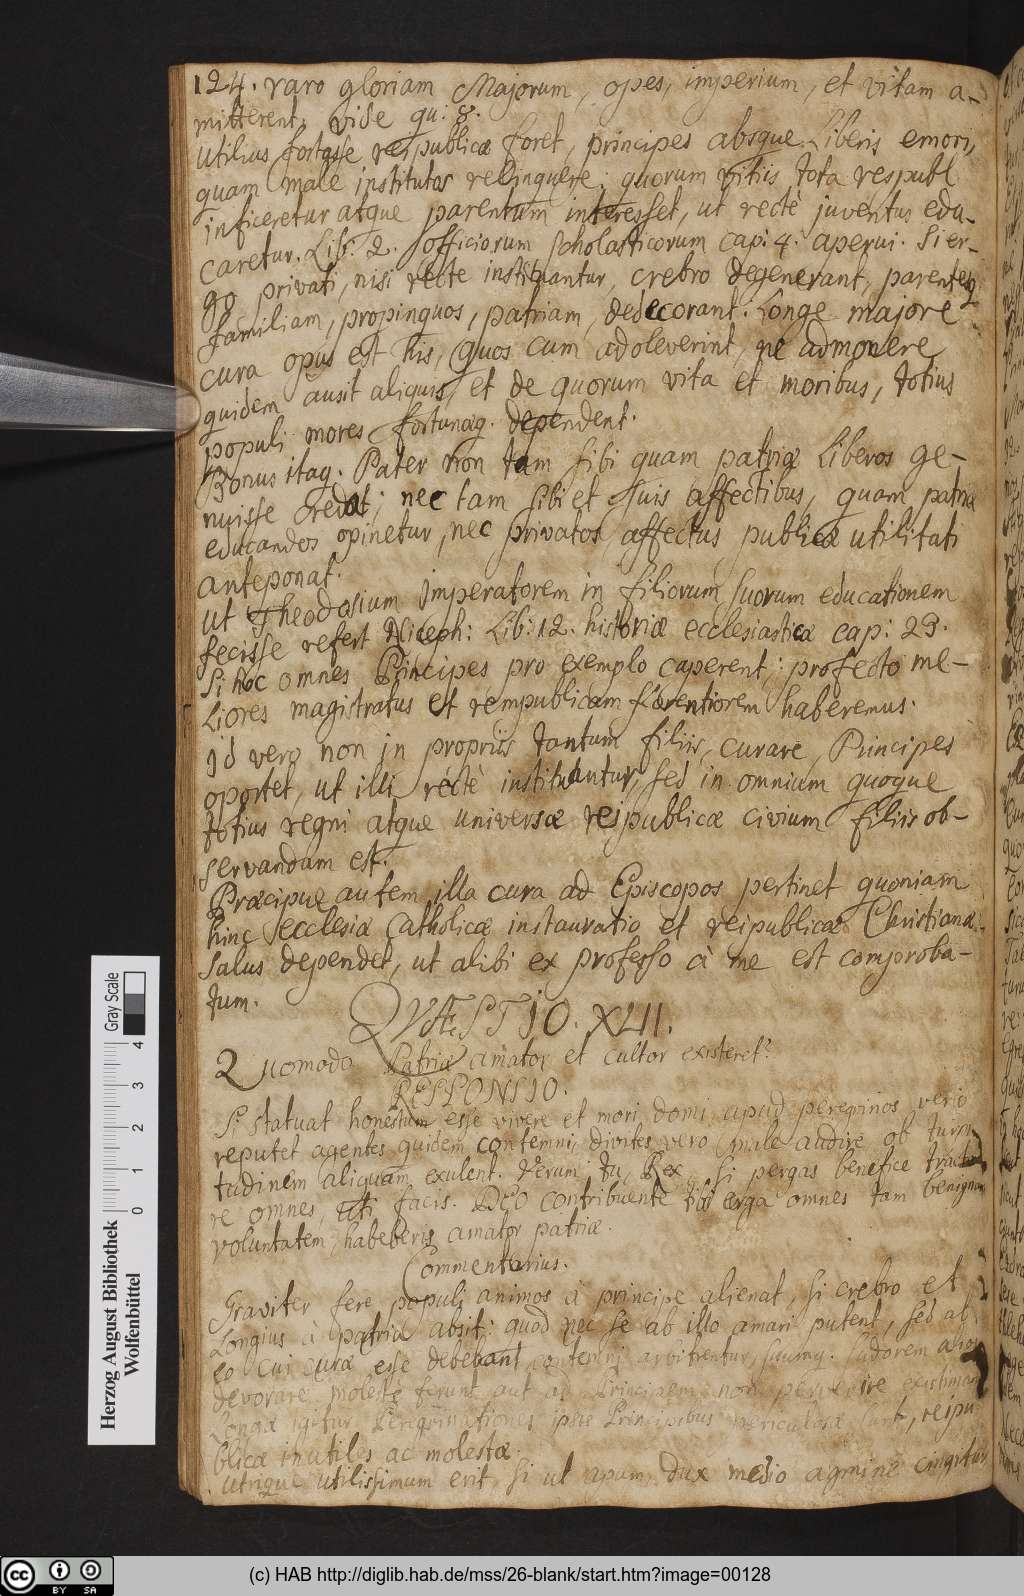 124. raro gloriam Majorum, opes, imperium, et vitam a-
mitterent. vide qu: 8.
Utilius fortasse reipublicæ foret, principes absque Liberis emori,
quam male institutos relinquere: quorum vitiis tota respubl
inficeretur atque parentum interesset, ut rectè juventus edu-
caretur. Lib: 2. officiorum scholasticorum cap: 4. aperui. Si er-
go privati, nisi recte instituantur, crebro degenerant, parentes
familiam, propinquos, patriam, dedecorant. Longe majore
cura opus est his, quos cum adoleverint, ne admonere
quidem ausit aliquis, et de quorum vita et moribus, totius
populi mores fortunæq. dependent.
Bonus itaq. Pater non tam sibi quam patriæ Liberos ge-
nuisse credat; nec tam sibi et suis affectibus, quam patriæ
educandos opinetur, nec privatos affectus publicæ utilitati
anteponat.
Ut Theodosium Imperatorem in filiorum suorum educationem
fecisse refert Niceph: Lib: 12. historiæ ecclesiasticæ cap: 23.
Si hoc omnes Principes pro exemplo caperent; profecto me-
liores magistratus et rempublicam florentiorem haberemus.
Id vero non in propriis tantum filiis, curare Principes
oportet, ut illi rectè instituantur, sed in omnium quoque
totius regni atque universæ reipublicæ civium filiis ob-
servandum est.
Præcipue autem illa cura ad Episcopos pertinet quoniam
hinc ecclesiæ Catholicæ instauratio et reipublicæ Christianæ
salus dependet, ut alibi ex professo à me est comproba-
tum.
QVÆSTIO. XLII.
Quomodo Patriæ amator et cultor existeret?
RESPONSIO.
Si statuat honestum esse vivere et mori domi apud peregrinos vero
reputet agentes quidem contemni, divites vero male audire ob turpi
tudinem aliquam exulent. Verum tu, Rex si pergas benefice tracta
re omnes, uti facis. DEO contribuente erga omnes tam benignam
voluntatem habeberis amator patriæ.
Commentarius.
Graviter fere populi animos à principe alienat, si crebro et
Longius à patria absit: quod nec se ab illo amari putent, sed ab
eo cui curæ esse debebant contemni arbitrentur, suumq. sudorem alios
devorare molestè ferunt aut ad Principem non
Longæ igitur Peregrinationes ipsis Principibus periculosæ sunt, reipu
blicæ inutiles ac molestæ.
Utrique utilissimum erit, si ut apum dux medio agmine cingitur
Herzog August Bibliothek
Wolfenbüttel
0 1 2 3 4
Gray Scale
(c) HAB http://diglib.hab.de/mss/26-blank/start.htm?image=00128
cc BY SA